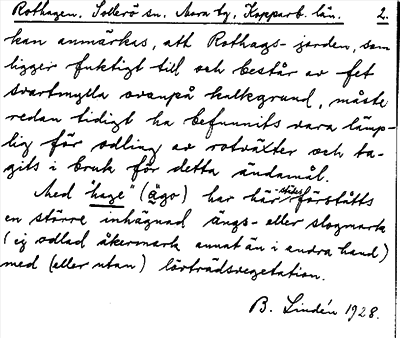 Rothagen. Sollerö sn. Mora tg. Kopparb. län. 2.
kan anmärkas, att Rothags-jorden, som
ligger fuktigt till och består av fet
svartmylla ovanpå kalkgrund, måste
redan tidigt ha befunnits vara lämp-
lig för odling av rotväxter och ta-
gits i bruk för detta ändamål.
Med "hage" (ägo) har här städse förståtts
en större inhägnad ängs- eller slogmark
(ej odlad åkermark annat än i andra hand)
med (eller utan) lövträdsvegetation.
B. Lindén 1928.